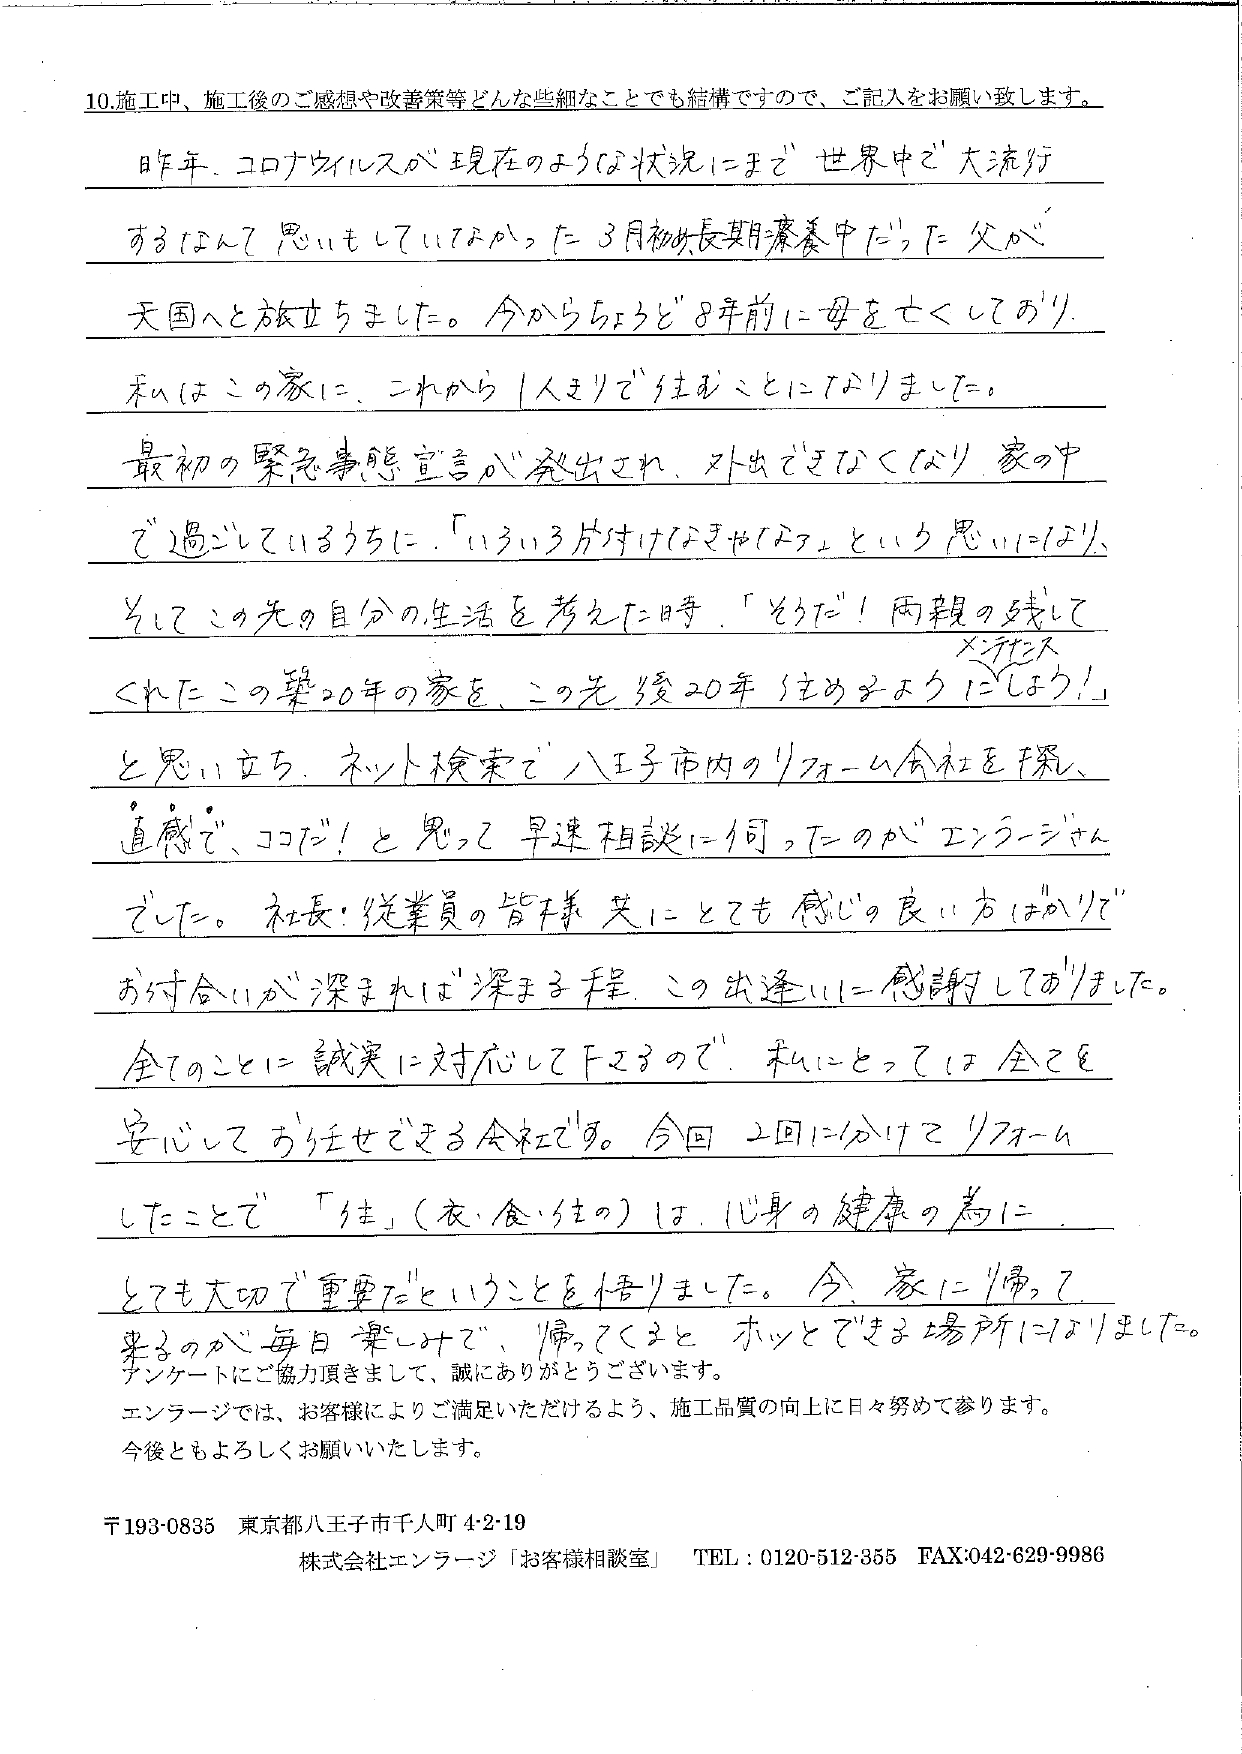 10.施工中、施工後のご感想や改善策等どんな些細なことでも結構ですので、ご記入をお願い致します。
昨年、コロナウイルスが現在のような状況にまで世界中で大流行
するなんて思いもしていなかった3月初め、長期療養中だった父が
天国へと旅立ちました。今からちょうど8年前に母を亡くしており、
私はこの家に、これから1人きりで住むことになりました。
最初の緊急事態宣言が発出され、外出できなくなり、家の中
で過ごしているうちに、「いろいろ片付けなきゃなァ」という思いになり、
そしてこの先の自分の生活を考えた時、「そうだ!両親の残して
くれたこの築20年の家を、この先後20年住めるようにメンテナンスしよう!」
と思い立ち、ネット検索で八王子市内のリフォーム会社を探し、
直感で、ココだ!と思って早速相談に伺ったのがエンラージさん
でした。社長・従業員の皆様共にとても感じの良い方ばかりで
お付合いが深まれば深まる程、この出逢いに感謝しておりました。
全てのことに誠実に対応して下さるので、私にとっては全てを
安心してお任せできる会社です。今回2回に分けてリフォーム
したことで「住」(衣・食・住の)は、心身の健康の為に、
とても大切で重要だということを悟りました。今、家に帰って
来るのが毎日楽しみで、帰ってくるとホッとできる場所になりました。
アンケートにご協力頂きまして、誠にありがとうございます。
エンラージでは、お客様によりご満足いただけるよう、施工品質の向上に日々努めて参ります。
今後ともよろしくお願いいたします。
〒193-0835 東京都八王子市千人町 4-2-19
株式会社エンラージ「お客様相談室」 TEL:0120-512-355 FAX:042-629-9986